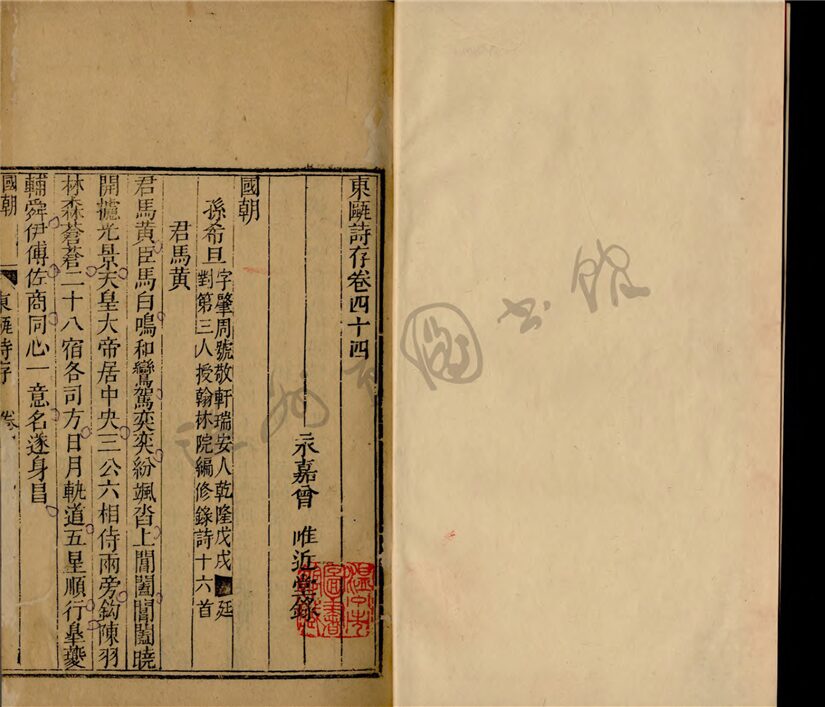 東甌詩存卷四十四
永嘉曾 唯近堂錄
國朝
孫希旦 字肇周號敬軒瑞安人乾隆戊戌 廷
對第三人授翰林院編修錄詩十六首
君馬黃
君馬黃臣馬白鳴和鸞駕奕奕紛颯沓上閶闔閶闔曉
開攄光景天皇大帝居中央三公六相侍兩旁鈎陳羽
林森蒼蒼二十八宿各司方日月軌道五星順行皋夔
輔舜伊傅佐商同心一意名遂身昌
國朝 東甌詩存 卷